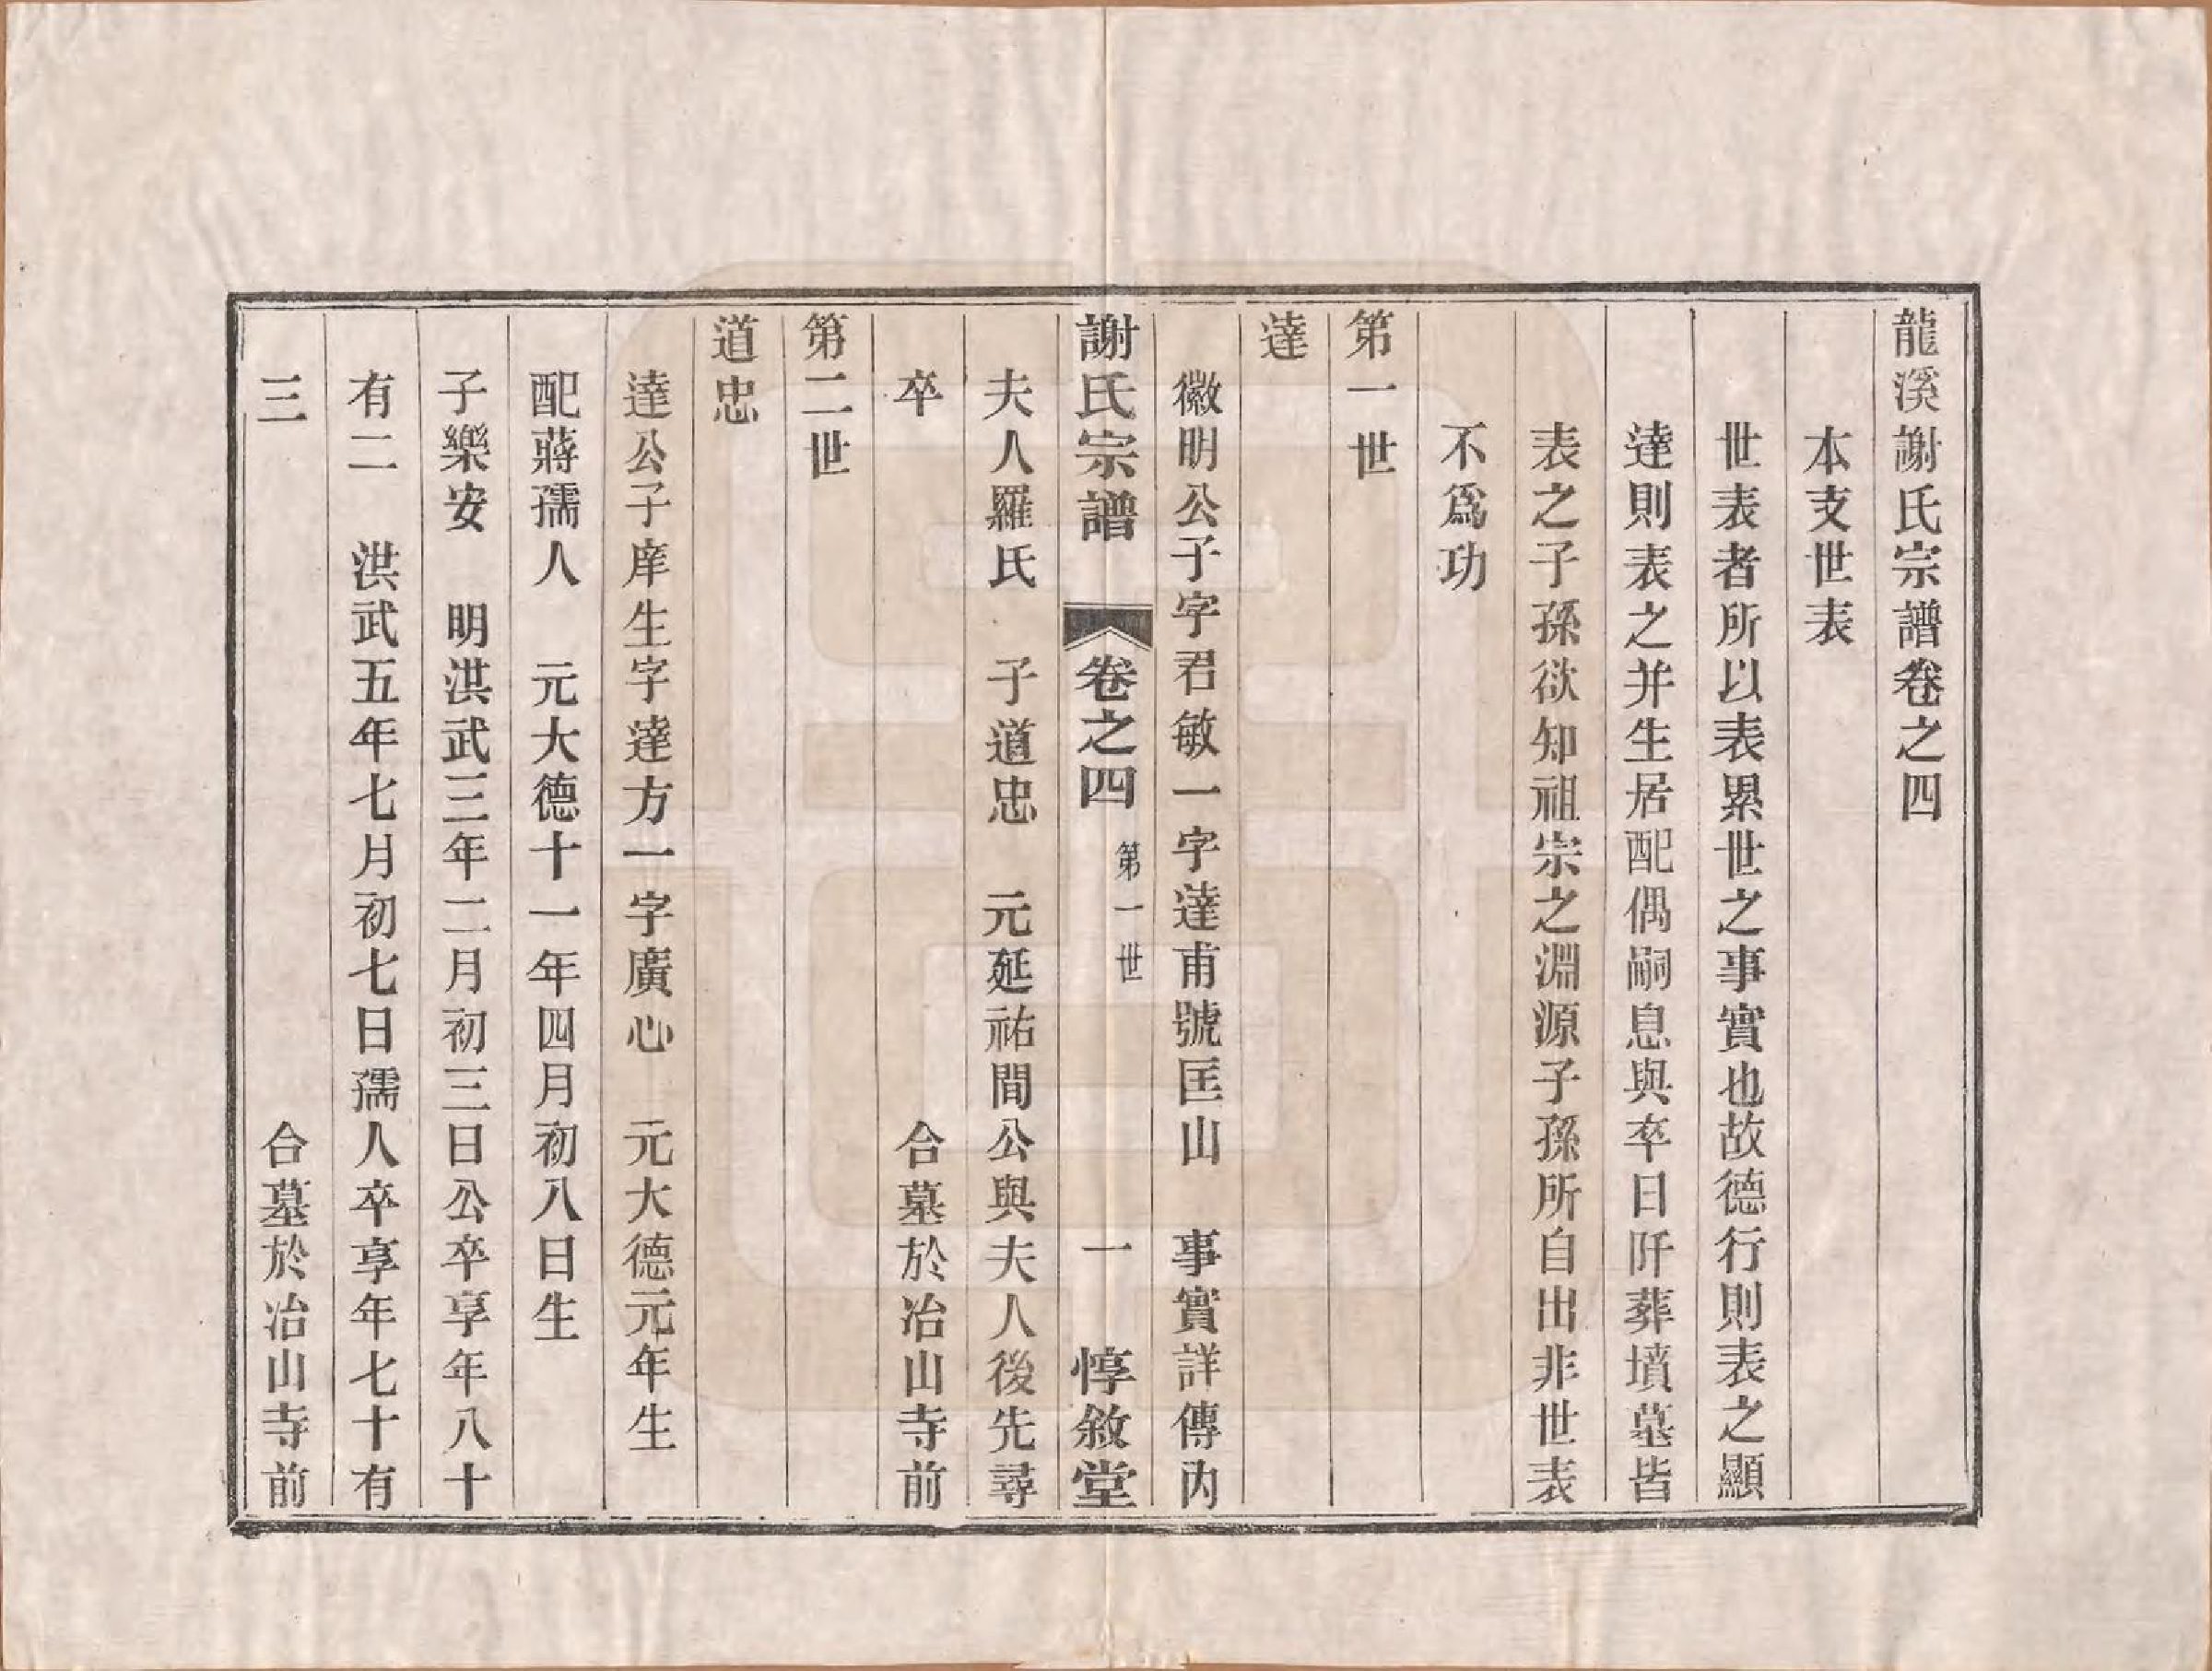 龍溪謝氏宗譜卷之四
本支世表
世表者所以表累世之事實也故德行則表之顯
達則表之并生居配偶嗣息與卒日阡葬墳墓皆
表之子孫欲知祖宗之淵源子孫所自出非世表
不爲功
第一世
達
徽明公子字君敏一字達甫號匡山　事實詳傳內
謝氏宗譜　卷之四　第一世　一　惇敘堂
夫人羅氏　子道忠　元延祐間公與夫人後先尋
卒　合墓於冶山寺前
第二世
道忠
達公子庠生字達方一字廣心　元大德元年生
配蔣孺人　元大德十一年四月初八日生
子樂安　明洪武三年二月初三日公卒享年八十
有二　洪武五年七月初七日孺人卒享年七十有
三　合墓於冶山寺前